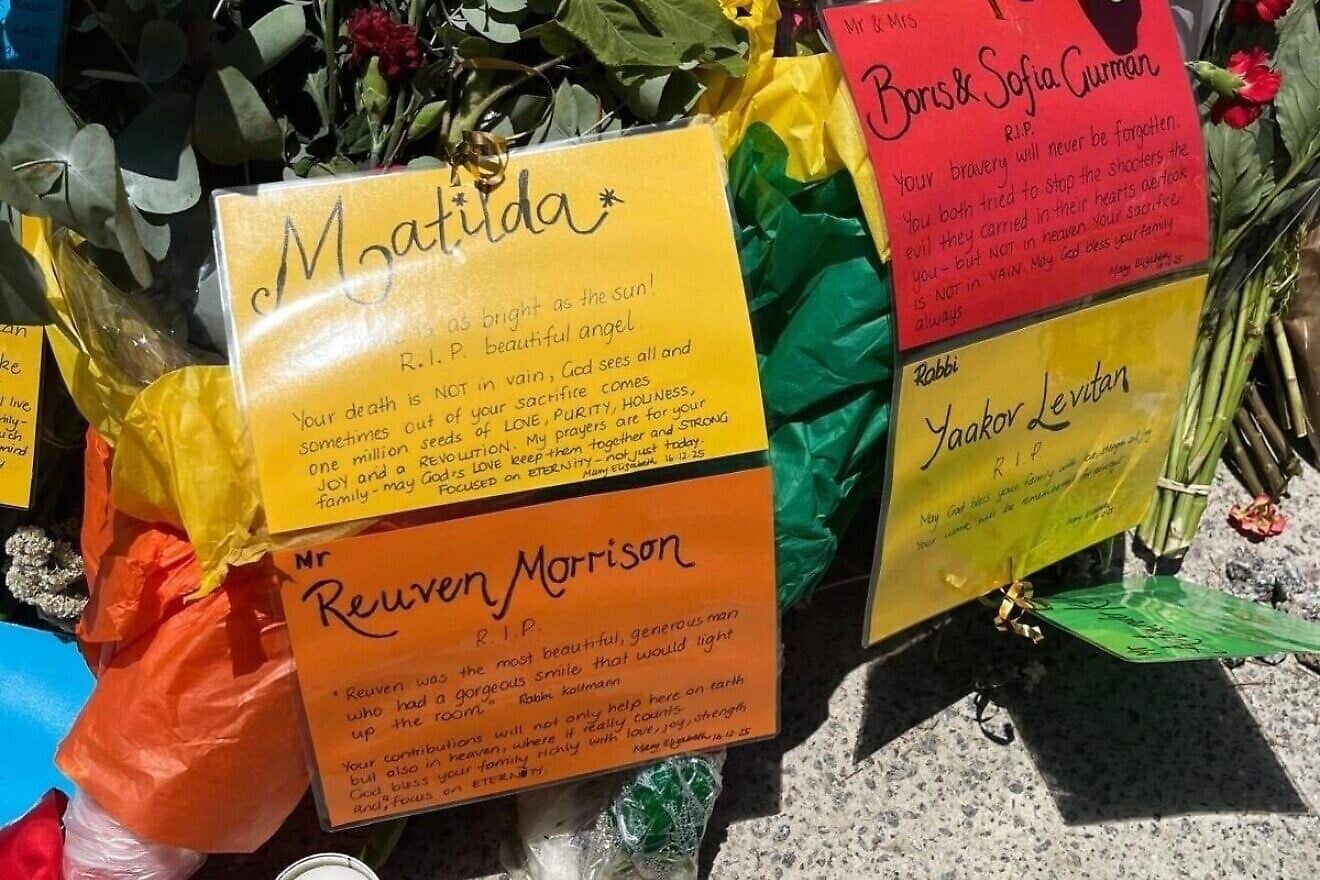 Matilda
as bright as the sun!
R.I.P. beautiful angel
Your death is NOT in vain, God sees all and
sometimes out of your sacrifice comes
one million seeds of LOVE, PURITY, HOLINESS,
JOY and a REVOLUTION. My prayers are for your
family - may God's LOVE keep them together and STRONG
FOCUSED on ETERNITY - not just today.
Mary Elizabeth 16.12.25
Mr
Reuven Morrison
R.I.P.
"Reuven was the most beautiful, generous man
who had a gorgeous smile that would light
up the room." Rabbi Kollmann
Your contributions will not only help here on earth
but also in heaven, where it really counts.
God bless your family richly with love, joy, strength
and focus on ETERNITY.
Mary Elizabeth 16.12.25
Mr & Mrs
Boris & Sofia Gurman
R.I.P.
Your bravery will never be forgotten.
You both tried to stop the shooters the
evil they carried in their hearts overtook
you - but NOT in heaven. Your sacrifice
is NOT in VAIN. May God bless your family
always.
Mary Elizabeth
16.12.25
Rabbi
Yaakov Levitan
R.I.P.
May God bless your family
Your work will be remembered
an
ke
live
ily-
uch
mind
y